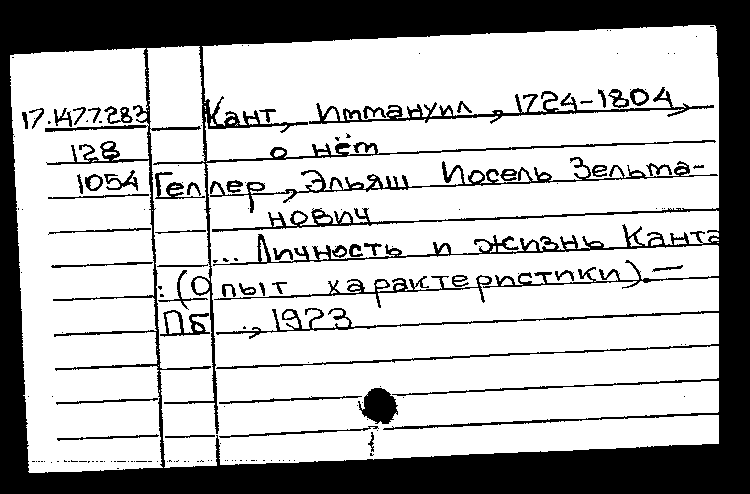 17.1477.283 Кант, Иммануил, 1724-1804,
128 о нём
1054 Геллер, Эльяш Иосель Зельма-
нович
... Личность и жизнь Канта
: (Опыт характеристики). —
Пб., 1923